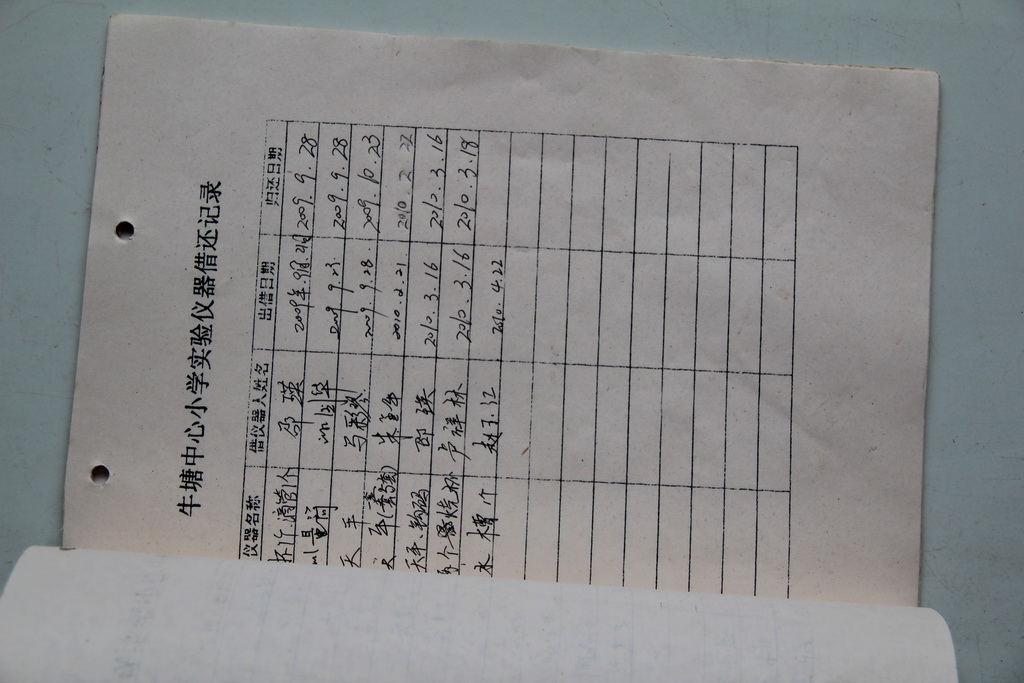 牛塘中心小学实验仪器借还记录
仪器名称 借仪器人姓名 出借日期 归还日期
滴管1个 邵瑛 2009年.9月 2009.9.28
量筒 2009.9.23 2009.9.28
天平 马 2009.9.28. 2009.10.23
平 朱 2010.2.21 2010.2.22
天平、钩码 邵瑛 2010.3.16 2010.3.16
个 烧杯 卢祥林 2010.3.16 2010.3.18
水槽1个 赵 2010.4.22